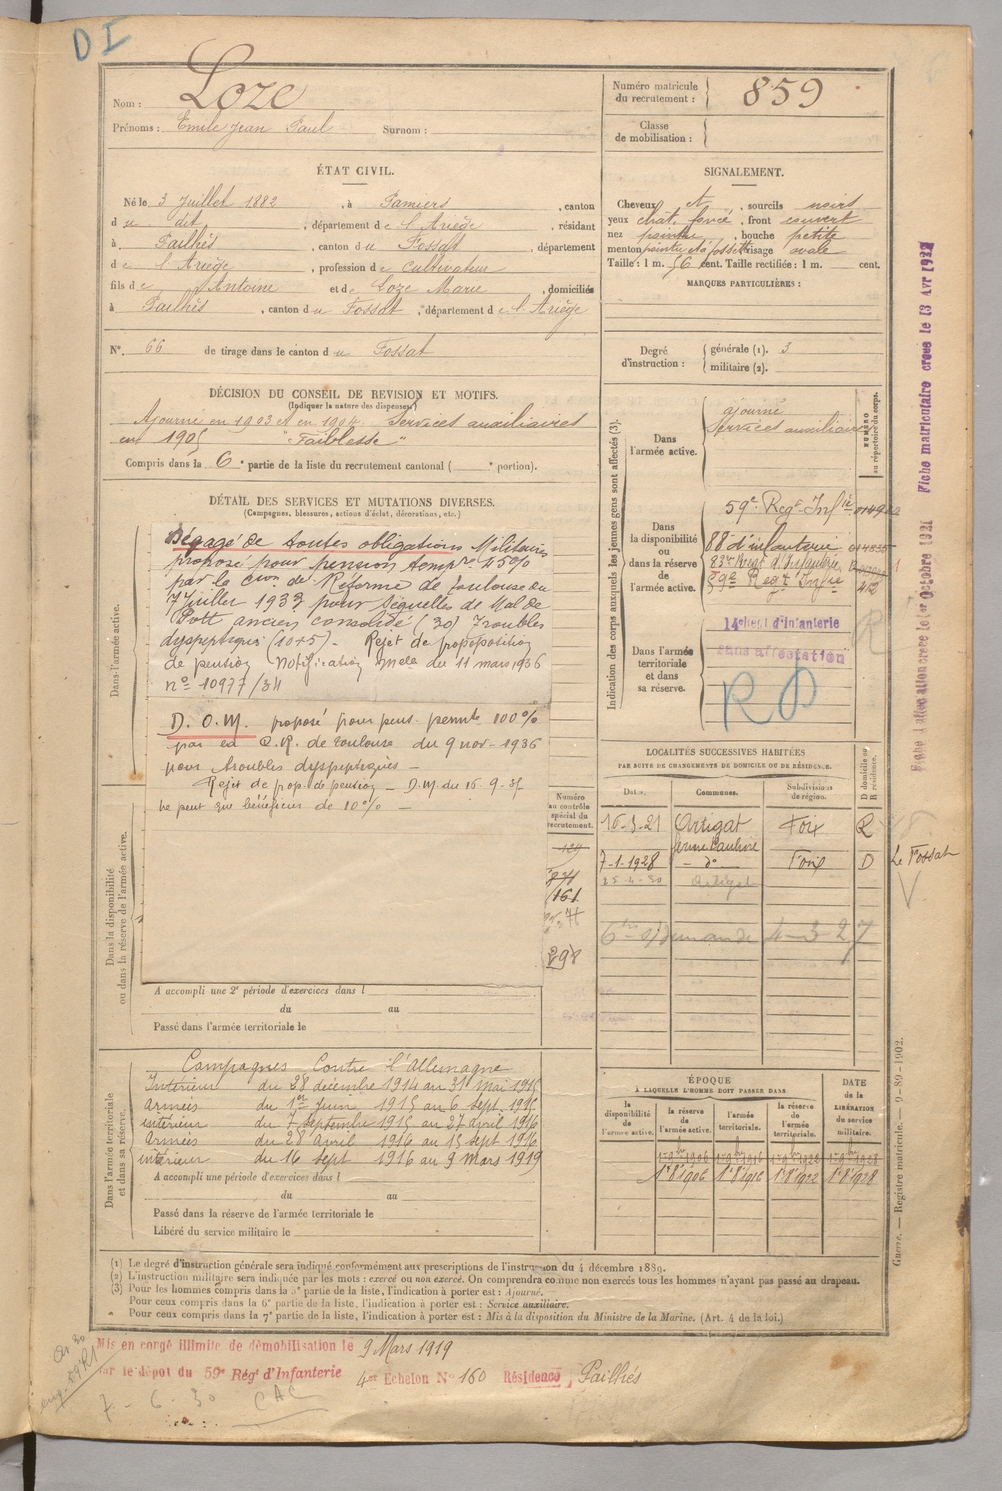 D I
Nom : Loze
Prénoms : Emile Jean Paul Surnom :
Numéro matricule du recrutement : 859
Classe de mobilisation :
ÉTAT CIVIL.
Né le 3 Juillet 1882, à Pamiers, canton
du dit, département de l'Ariège, résidant
à Pailhès, canton du Fossat, département
de l'Ariège, profession de cultivateur
fils de Antoine et de Loze Marie, domiciliés
à Pailhès, canton du Fossat, département de l'Ariège
N°. 66 de tirage dans le canton du Fossat
SIGNALEMENT.
Cheveux et, sourcils noirs
yeux chat. foncé, front couvert
nez pointu, bouche petite
menton pointu et à fossette visage ovale
Taille : 1 m. 56 cent. Taille rectifiée : 1 m. cent.
MARQUES PARTICULIÈRES :
Degré d'instruction : générale (1). 3
militaire (2).
DÉCISION DU CONSEIL DE REVISION ET MOTIFS.
(Indiquer la nature des dispenses.)
Ajourné en 1903 et en 1904. Services auxiliaires
en 1905 "Faiblesse"
Compris dans la 6e partie de la liste du recrutement cantonal ( e portion).
DÉTAIL DES SERVICES ET MUTATIONS DIVERSES.
(Campagnes, blessures, actions d'éclat, décorations, etc.)
Dans l'armée active.
Dégagé de toutes obligations Militaires
proposé pour pension tempre 45%
par la Cion de Réforme de Toulouse du
7 Juillet 1933 pour séquelles de Mal de
Pott ancien consolidé (30) Troubles
dyspeptiques (10+5) - Rejet de proposition
de pension Notification Mnelle du 11 mars 1936
n° 10977/34
D. O. M. proposé pour pens. permte 100%
par la C.R. de Toulouse du 9 nov - 1936
pour troubles dyspeptiques -
Rejet de prop. de pension - D.M. du 16. 9. 37
ne peut que bénéficier de 10% -
Dans la disponibilité ou dans la réserve de l'armée active.
A accompli une 2e période d'exercices dans l
du au
Passé dans l'armée territoriale le
Dans l'armée territoriale et dans sa réserve.
Campagnes Contre l'Allemagne
Intérieur du 28 décembre 1914 au 31 Mai 1915
Armées du 1er Juin 1915 au 6 sept. 1915
intérieur du 7 septembre 1915 au 27 avril 1916
Armées du 28 Avril 1916 au 15 sept 1916
intérieur du 16 sept 1916 au 9 Mars 1919
A accompli une période d'exercices dans l
du au
Passé dans la réserve de l'armée territoriale le
Libéré du service militaire le
Numéro au contrôle spécial du recrutement.
161
298
Indication des corps auxquels les jeunes gens sont affectés (3).
NUMÉRO au répertoire du corps.
Dans l'armée active.
ajourné
Services auxiliaires
Dans la disponibilité ou dans la réserve de l'armée active.
59e Régt Infie
88 d'infanterie
83e Régt d'Infanterie
59e Régt Infie
Dans l'armée territoriale et dans sa réserve.
14e régt d'infanterie
sans affectation
R D
R
LOCALITÉS SUCCESSIVES HABITÉES
PAR SUITE DE CHANGEMENTS DE DOMICILE OU DE RÉSIDENCE.
Dates. Communes. Subdivisions de région. D domicile ou R résidence.
16-3-21 Artigat Foix R
7-1-1928 - d° Foix D Le Fossat
25-4-30 Artigat
demande 4-3-27
ÉPOQUE
À LAQUELLE L'HOMME DOIT PASSER DANS
la disponibilité de l'armée active. la réserve de l'armée active. l'armée territoriale. la réserve de l'armée territoriale.
DATE de la LIBÉRATION du service militaire.
1er 8 1906 1er 8 1916 1er 8 1922 1er 8 1928
Fiche matriculaire créée le 13 Avr 1932
Guerre. — Registre matricule. — 9-89-1902.
(1) Le degré d'instruction générale sera indiqué conformément aux prescriptions de l'instruction du 4 décembre 1889.
(2) L'instruction militaire sera indiquée par les mots : exercé ou non exercé. On comprendra comme non exercés tous les hommes n'ayant pas passé au drapeau.
(3) Pour les hommes compris dans la 5e partie de la liste, l'indication à porter est : Ajourné.
Pour ceux compris dans la 6e partie de la liste, l'indication à porter est : Service auxiliaire.
Pour ceux compris dans la 7e partie de la liste, l'indication à porter est : Mis à la disposition du Ministre de la Marine. (Art. 4 de la loi.)
Mis en congé illimité de démobilisation le 9 Mars 1919
par le dépôt du 59e Régt d'Infanterie 4me Echelon N° 160 Résidence Pailhès
7 - 6 - 30 CAC